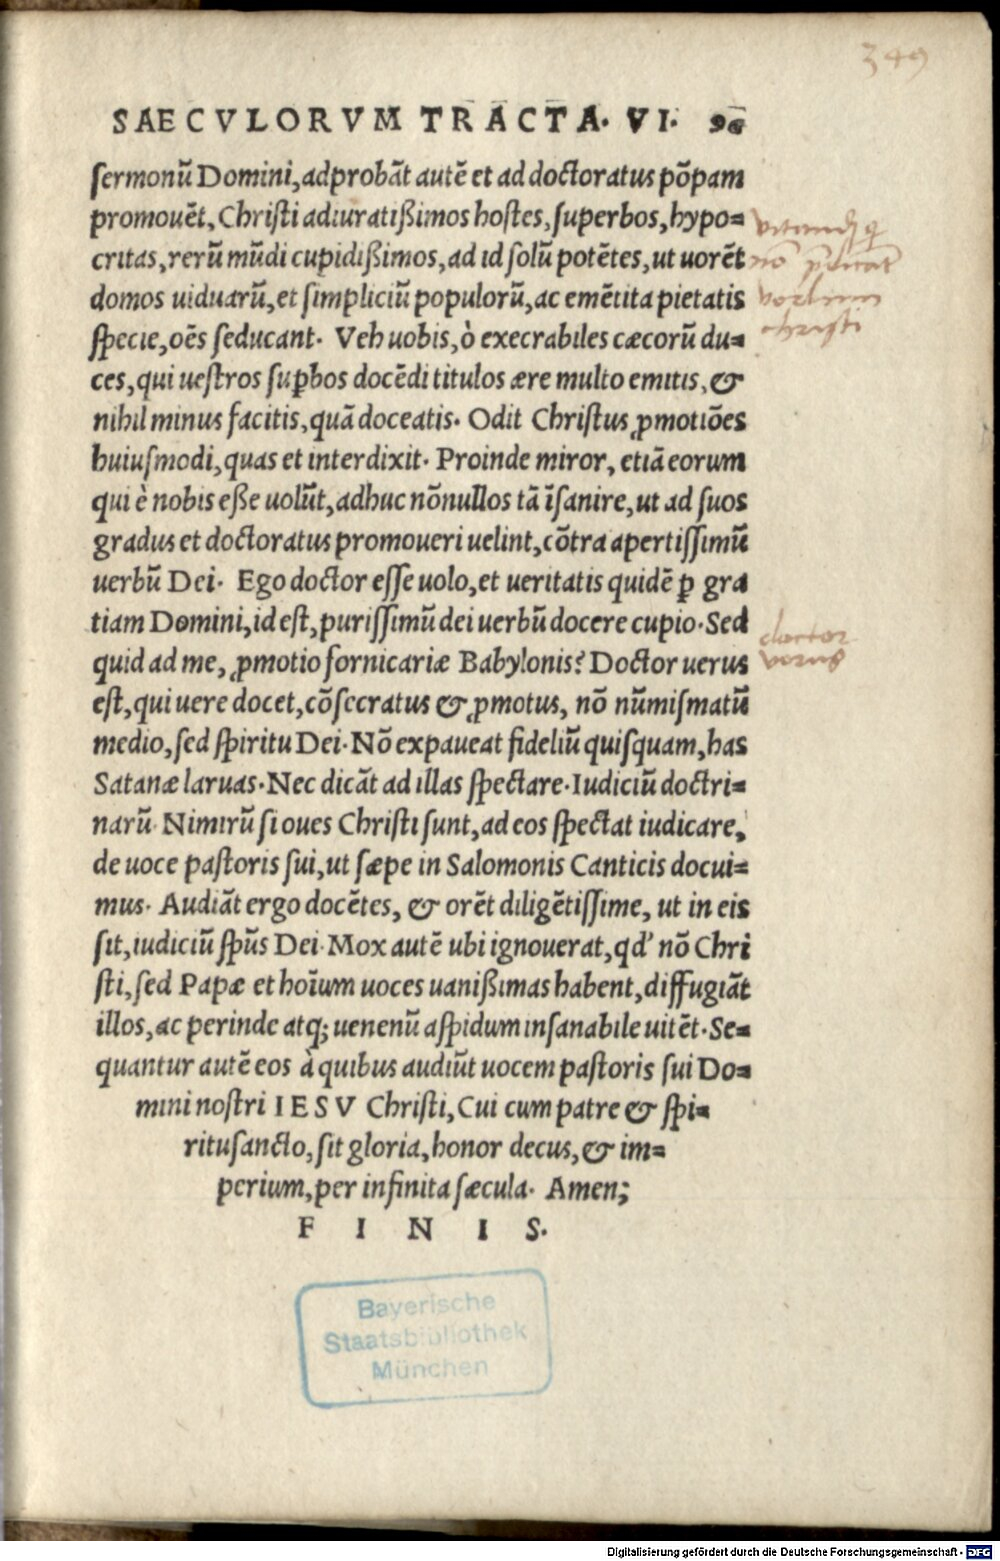 349
SAECVLORVM TRACTA. VI. 96
ſermonū Domini, adprobāt autē et ad doctoratus pōpam
promouēt, Chriſti adiuratißimos hoſtes, ſuperbos, hypo=
critas, rerū mūdi cupidißimos, ad id ſolū potētes, ut uorēt
domos uiduarū, et ſimpliciū populorū, ac emētita pietatis
ſpecie, oēs ſeducant. Veh uobis, ò execrabiles cæcorū du=
ces, qui ueſtros ſuꝑbos docēdi titulos ære multo emitis, &
nihil minus facitis, quā doceatis. Odit Chriſtus ꝓmotiōes
huiuſmodi, quas et interdixit. Proinde miror, etiā eorum
qui è nobis eße uolūt, adhuc nōnullos tā īſanire, ut ad ſuos
gradus et doctoratus promoueri uelint, cōtra apertiſſimū
uerbū Dei. Ego doctor eſſe uolo, et ueritatis quidē ꝑ gra
tiam Domini, id eſt, puriſſimū dei uerbū docere cupio. Sed
quid ad me, ꝓmotio fornicariæ Babylonis? Doctor uerus
eſt, qui uere docet, cōſecratus & ꝓmotus, nō nūmiſmatū
medio, ſed ſpiritu Dei. Nō expaueat fideliū quiſquam, has
Satanæ laruas. Nec dicāt ad illas ſpectare. Iudiciū doctri=
narū. Nimirū ſi oues Chriſti ſunt, ad eos ſpectat iudicare,
de uoce paſtoris ſui, ut ſæpe in Salomonis Canticis docui=
mus. Audiāt ergo docētes, & orēt diligētiſſime, ut in eis
ſit, iudiciū ſpūs Dei. Mox autē ubi ignouerat, qd' nō Chri
ſti, ſed Papæ et hoīum uoces uanißimas habent, diffugiāt
illos, ac perinde atq; uenenū aſpidum inſanabile uitēt. Se=
quantur autē eos à quibus audiūt uocem paſtoris ſui Do=
mini noſtri IESV Chriſti, Cui cum patre & ſpi=
rituſancto, ſit gloria, honor decus, & im=
perium, per infinita ſæcula. Amen;
F I N I S.
nō
verbum
christi
doctor
verus
Bayerische
Staatsbibliothek
München
Digitalisierung gefördert durch die Deutsche Forschungsgemeinschaft - DFG